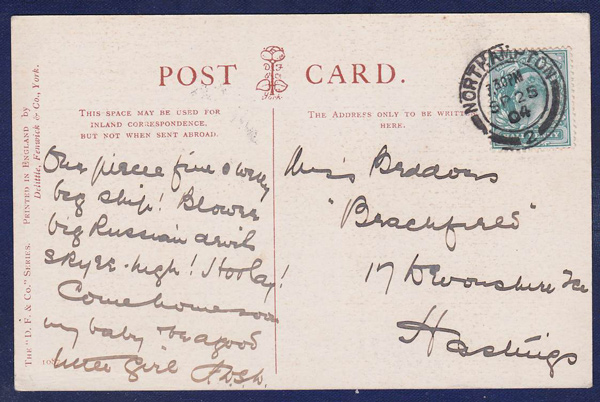 POST CARD.
D F & Co
York
THIS SPACE MAY BE USED FOR
INLAND CORRESPONDENCE,
BUT NOT WHEN SENT ABROAD.
THE ADDRESS ONLY TO BE WRITTEN
HERE.
NORTHAMPTON
3.30PM
SP 25
04
2
HALFPENNY
One piecee fine
big ship! Blower
big Russian devils
skyee-high! Hooray!
Come home soon
my baby be a good
little girl
Miss Beddows
"Beachfield"
17 Devonshire
Hastings
THE "D. F. & CO." SERIES. PRINTED IN ENGLAND by
Delittle, Fenwick & Co., York.